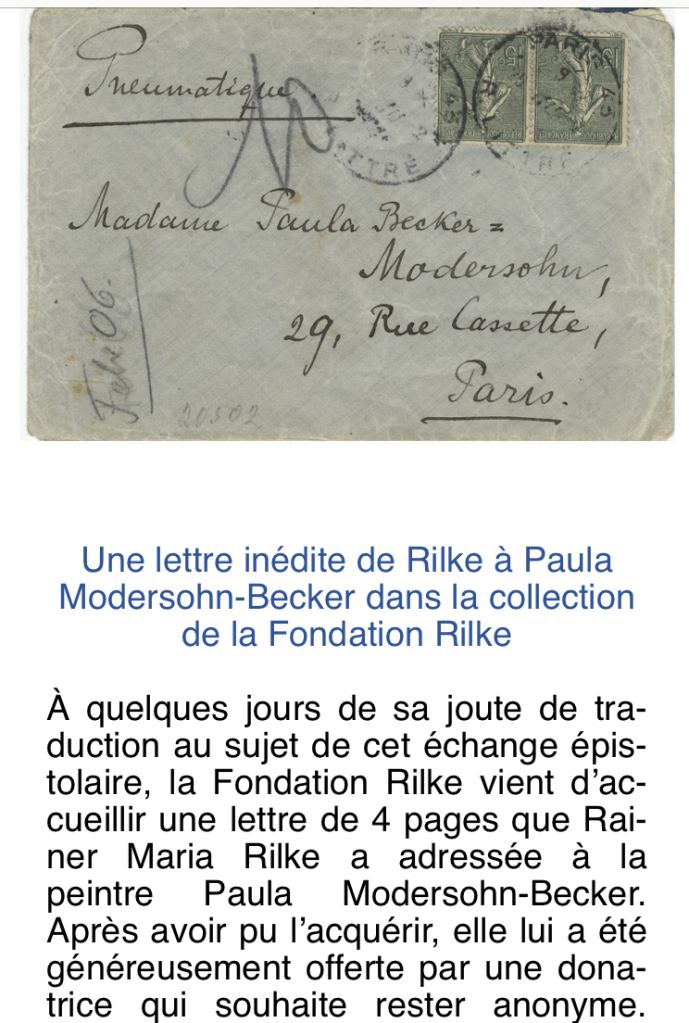 Pneumatique
15c
15c
PARIS 45
R. LITTRÉ
Madame Paula Becker=
Modersohn,
29, Rue Cassette,
Paris.
Febr. 06.
20502
Une lettre inédite de Rilke à Paula
Modersohn-Becker dans la collection
de la Fondation Rilke
À quelques jours de sa joute de tra-
duction au sujet de cet échange épis-
tolaire, la Fondation Rilke vient d’ac-
cueillir une lettre de 4 pages que Rai-
ner Maria Rilke a adressée à la
peintre Paula Modersohn-Becker.
Après avoir pu l’acquérir, elle lui a été
généreusement offerte par une dona-
trice qui souhaite rester anonyme.